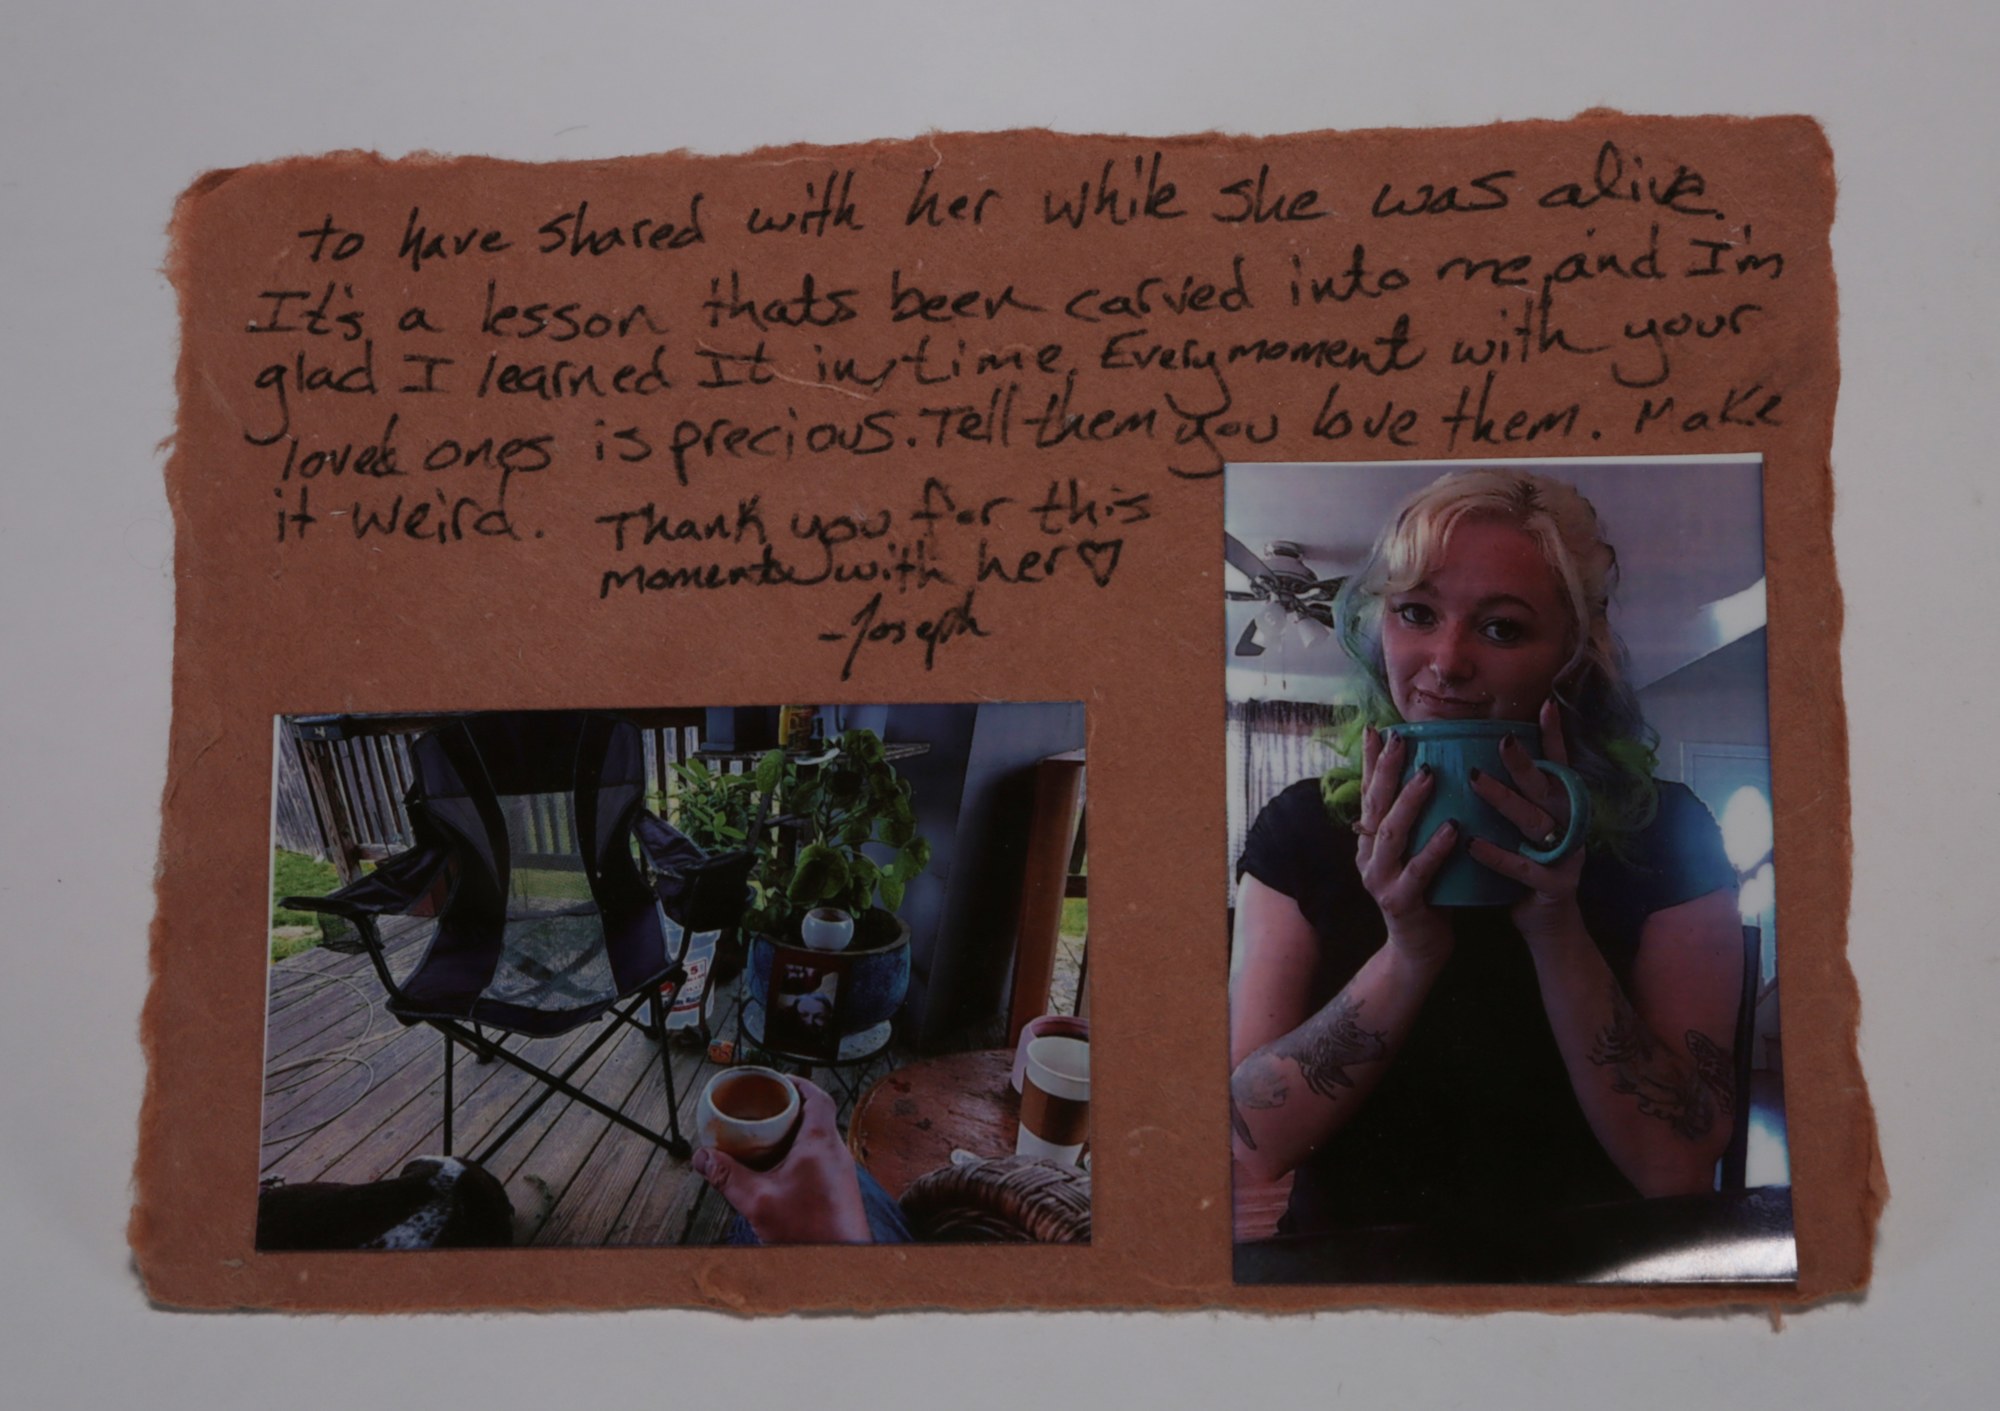 to have shared with her while she was alive.
It's a lesson thats been carved into me, and I'm
glad I learned It in time. Every moment with your
loved ones is precious. Tell them you love them. Make
it weird. Thank you for this
moment with her ♡
-Joseph